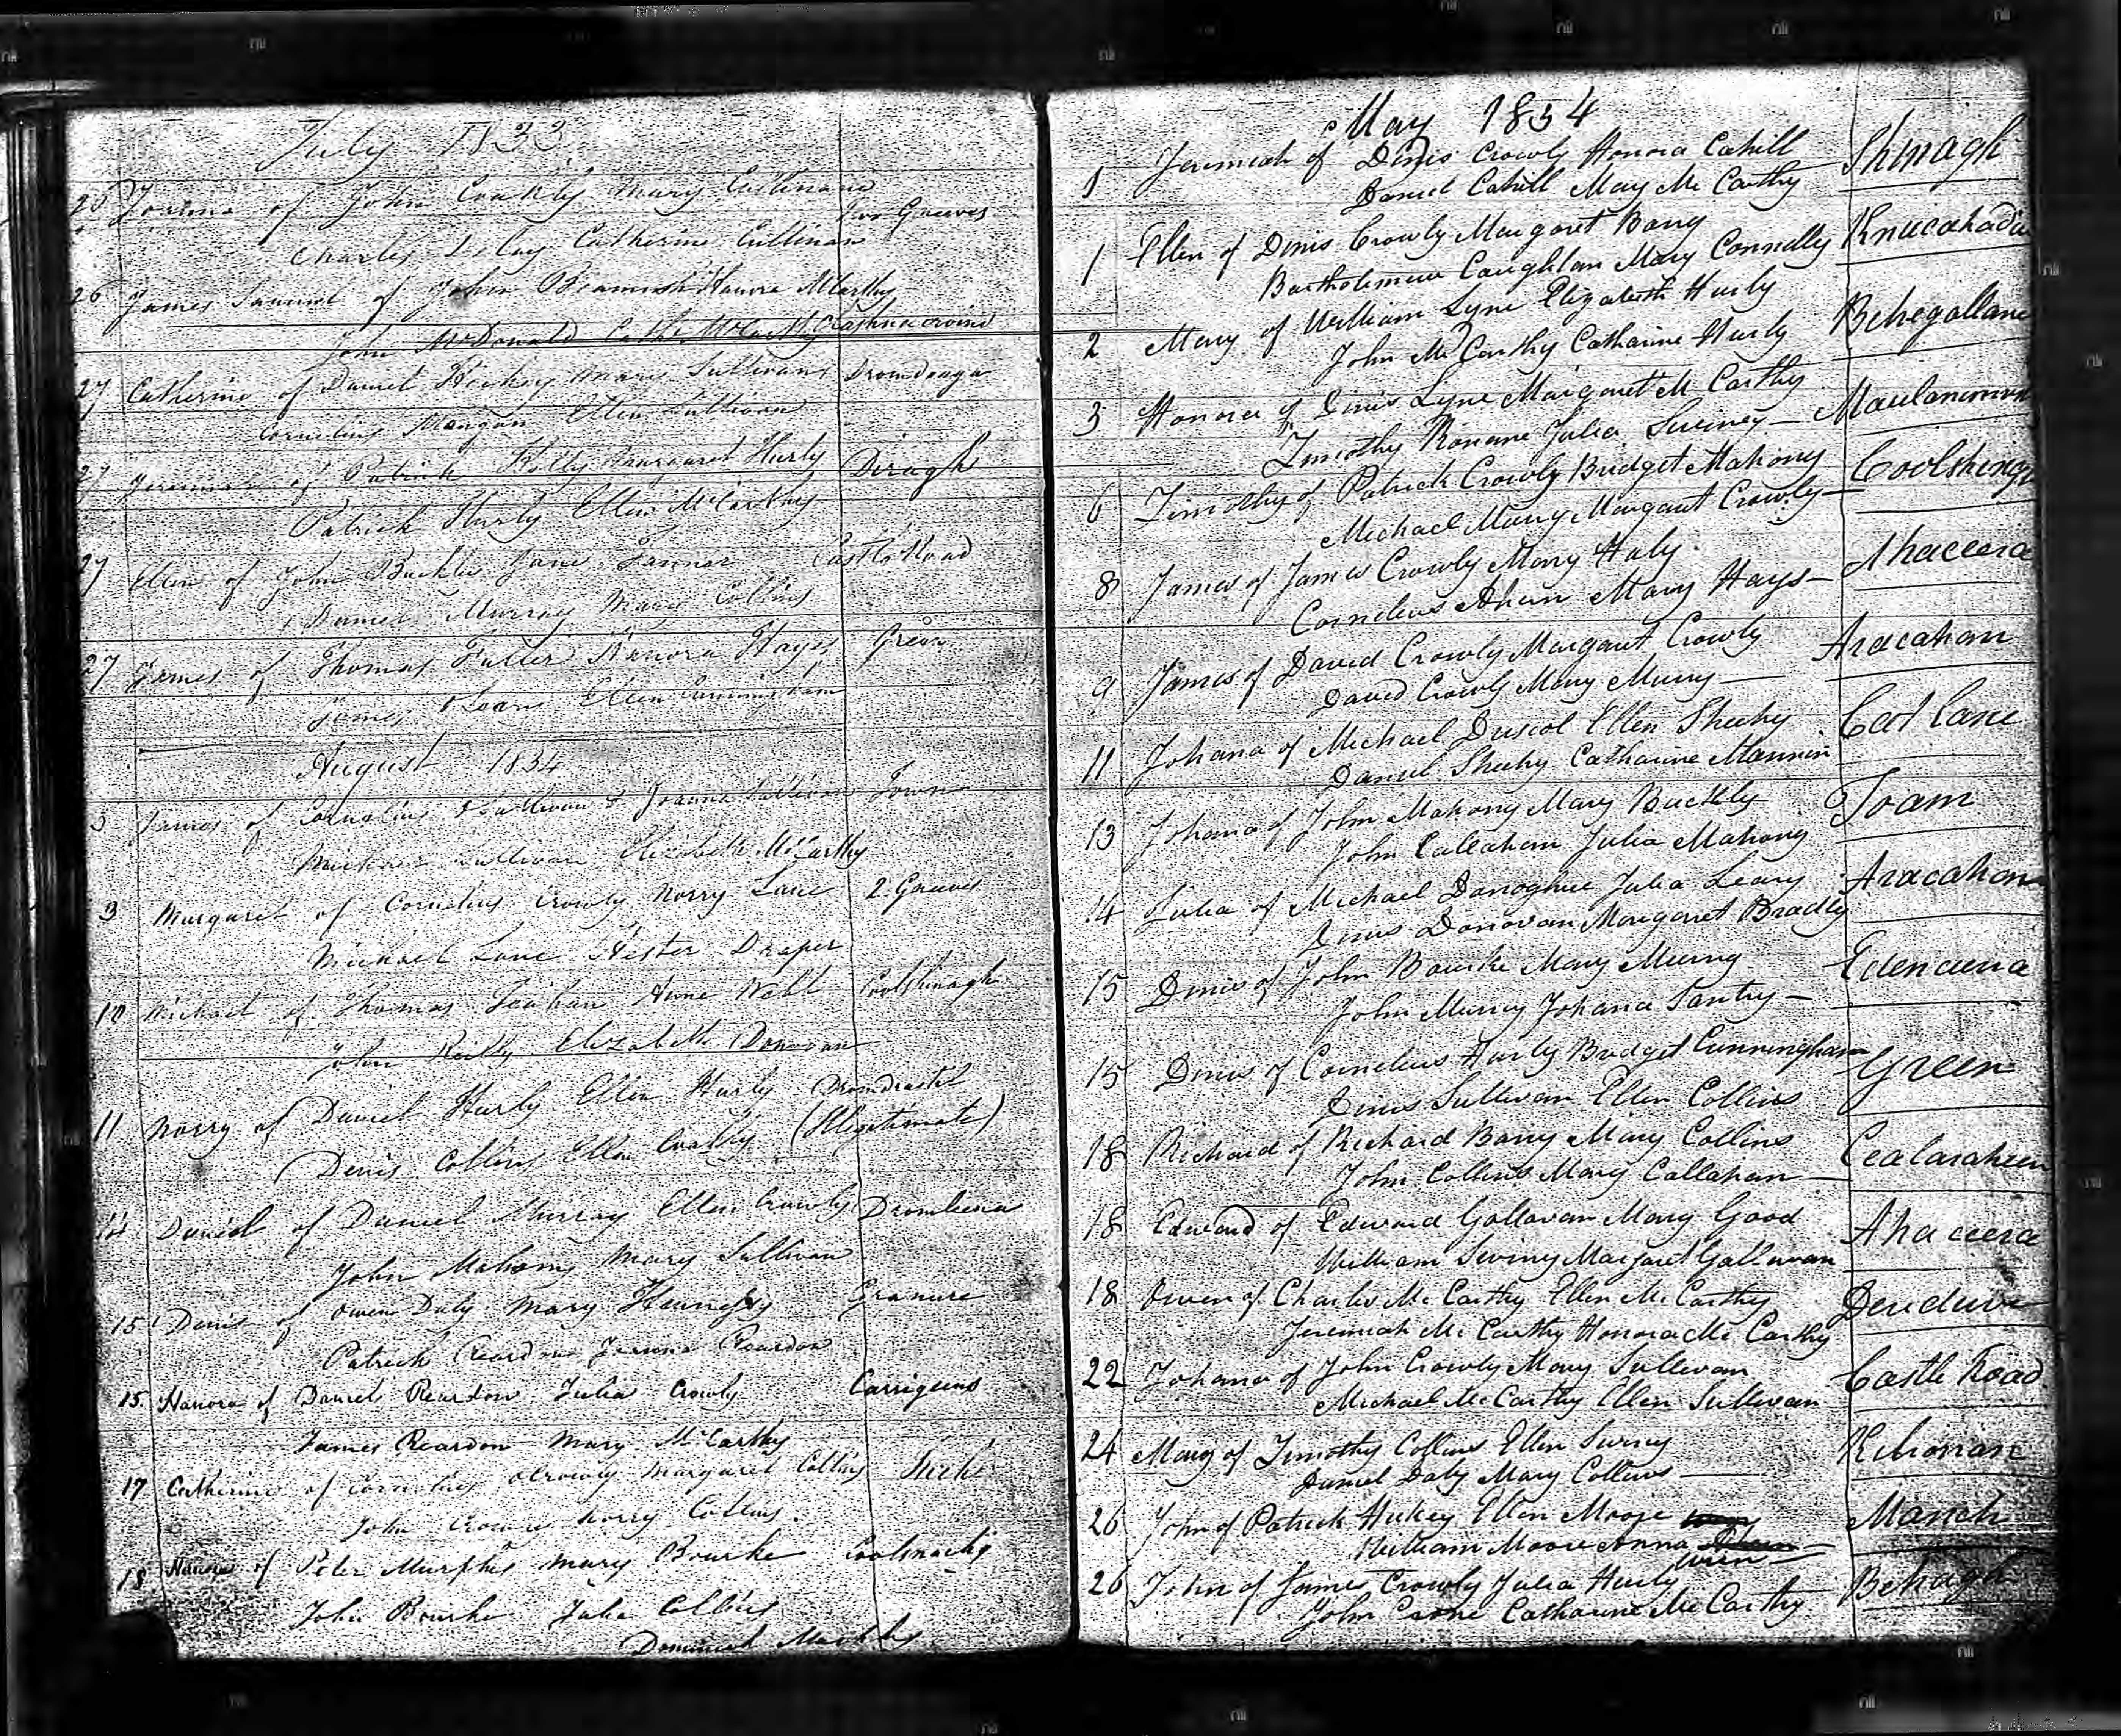 July 1833
25 Joanna of John Coakly Mary Cullinane
Two Greeves
Charles Delay Catherine Cullinan
26 James Samuel of John Beamish Hanora McCarthy
John McDonald Cath McCarthy
27 Catherine of Daniel Hickey Mary Sullivan
Cornelius Mangan Ellen Sullivan
27 Jeremiah of Patrick Kelly Margaret Hurly Diragh
Patrick Hurly Ellen McCarthy
27 Ellen of John Buckly Jane Castle Road
Daniel Murray Mary Collins
27 James of Thomas Fuller Hanora Hayes Green
James OLeary Ellen Cunningham
August 1834
3 James of Cornelius OSullivan & Joanna Sullivan Town
Michael Sullivan Elizabeth McCarthy
9 Margaret of Cornelius Crowly Norry Lane 2 Greeves
Michael Lane Hester Draper
10 Michael of Thomas Anne Webb Coolshinagh
John Reilly Elizabeth Donovan
11 Norry of Daniel Hurly Ellen Hurly Dromdrastil
Denis Collins Ellen Coakly (Illigitimate)
14 Daniel of Daniel Murray Ellen Crowly Dromleena
John Mahony Mary Sullivan
15 Denis of Owen Daly Mary Hennessy Granure
Patrick Reardon Joanna Reardon
15 Hanora of Daniel Reardon Julia Crowly Carrigeens
James Reardon Mary McCarthy
17 Catherine of Cornelius OCrowly Margaret Collins
John Crowly Norry Collins
18 Hanora of Peter Murphy Mary Bourke
John Bourke Julia Collins
May 1834
1 Jeremiah of Dinis Crowly Honora Cahill Shinagh
Daniel Cahill Mary Mc Carthy
1 Ellen of Dinis Crowly Margaret Barry Knucahada
Bartholimew Caughlan Mary Connelly
2 Mary of William Lyne Elizabeth Hurly Behegallane
John Mc Carthy Catharine Hurly
3 Honora of Dinis Lyne Margaret Mc Carthy
Timothy Ronane Julia Swiney
6 Timothy of Patrick Crowly Bridget Mahony
Michael Mary Margaret Crowly
8 James of James Crowly Mary Haly Ahaceera
Cornelius Ahern Mary Hays
9 James of David Crowly Margaret Crowly Aracahan
David Crowly Mary Murry
11 Johana of Michael Driscol Ellen Sheehy Coot Lane
Daniel Sheehy Catharine Mannin
13 Johana of John Mahony Mary Buckly Toam
John Callahan Julia Mahony
14 Julia of Michael Donoghue Julia Leary Aracahan
Dinis Donovan Margaret Bradly
15 Dinis of John Bourke Mary Murry
John Murry Johana Santry
15 Dinis of Cornelius Hurly Bridget Cunningham Green
Dinis Sullivan Ellen Collins
18 Richard of Richard Barry Mary Collins
John Collins Mary Callahan
18 Edward of Edward Gallavan Mary Good Ahaceera
William Swiny Margaret Gallavan
18 Owen of Charles Mc Carthy Ellen Mc Carthy
Jeremiah Mc Carthy Honora Mc Carthy
22 Johana of John Crowly Mary Sullivan Castle Road
Michael Mc Carthy Ellen Sullivan
24 Mary of Timothy Collins Ellen Swiny Kilronan
Daniel Daly Mary Collins
26 John of Patrick Hickey Ellen Moore Manch
William Moore Anna
26 John of James Crowly Julia Hurly Behagh
John Crone Catharine Mc Carthy